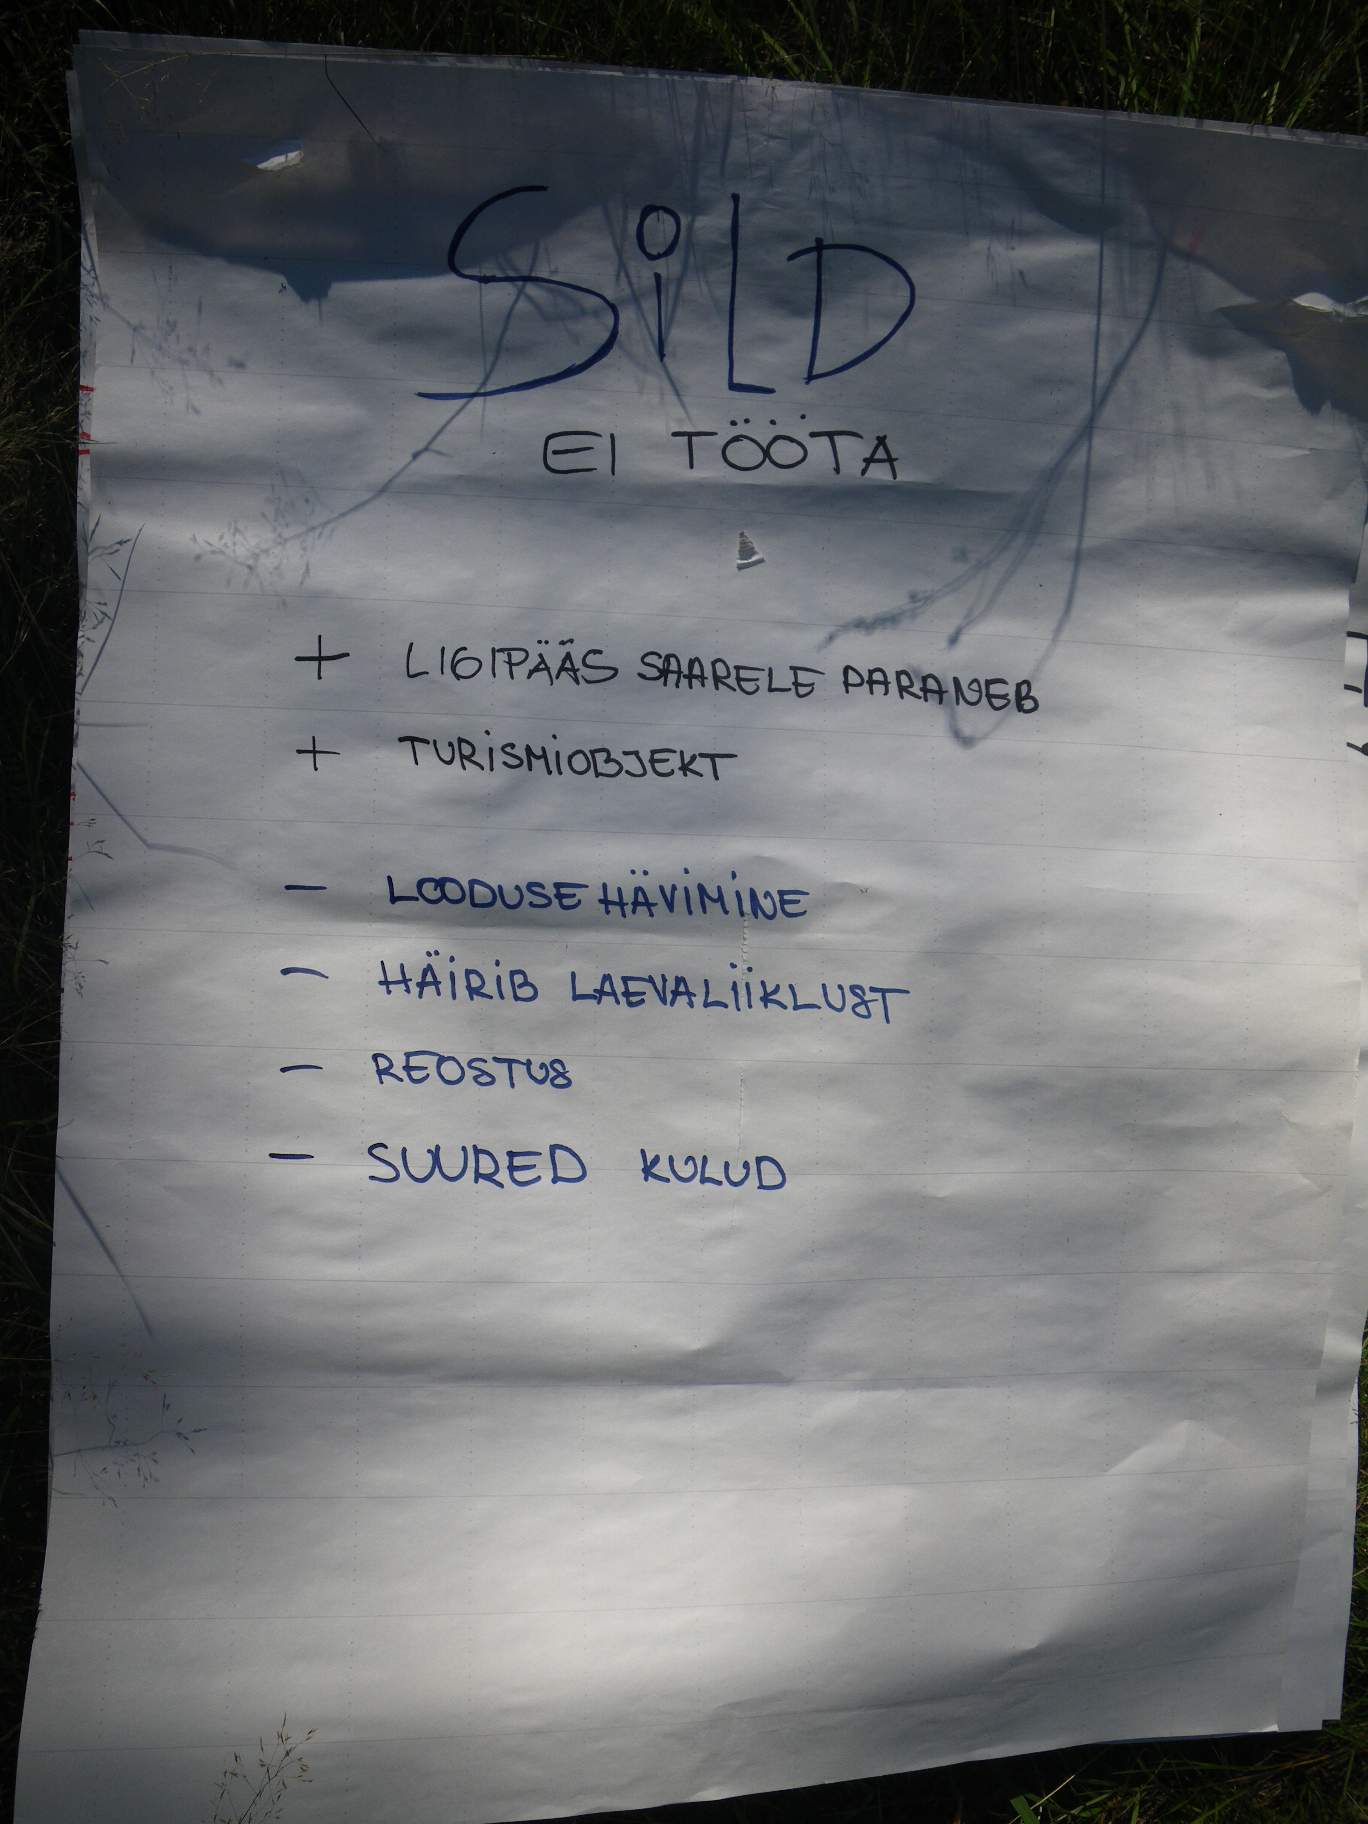 SiLD
EI TÖÖTA
+ LIGIPÄÄS SAARELE PARANEB
+ TURiSMiOBJEKT
- LOODUSE HÄViMiNE
- HÄiRiB LAEVALiiKLUST
- REOSTUS
- SUURED KULUD